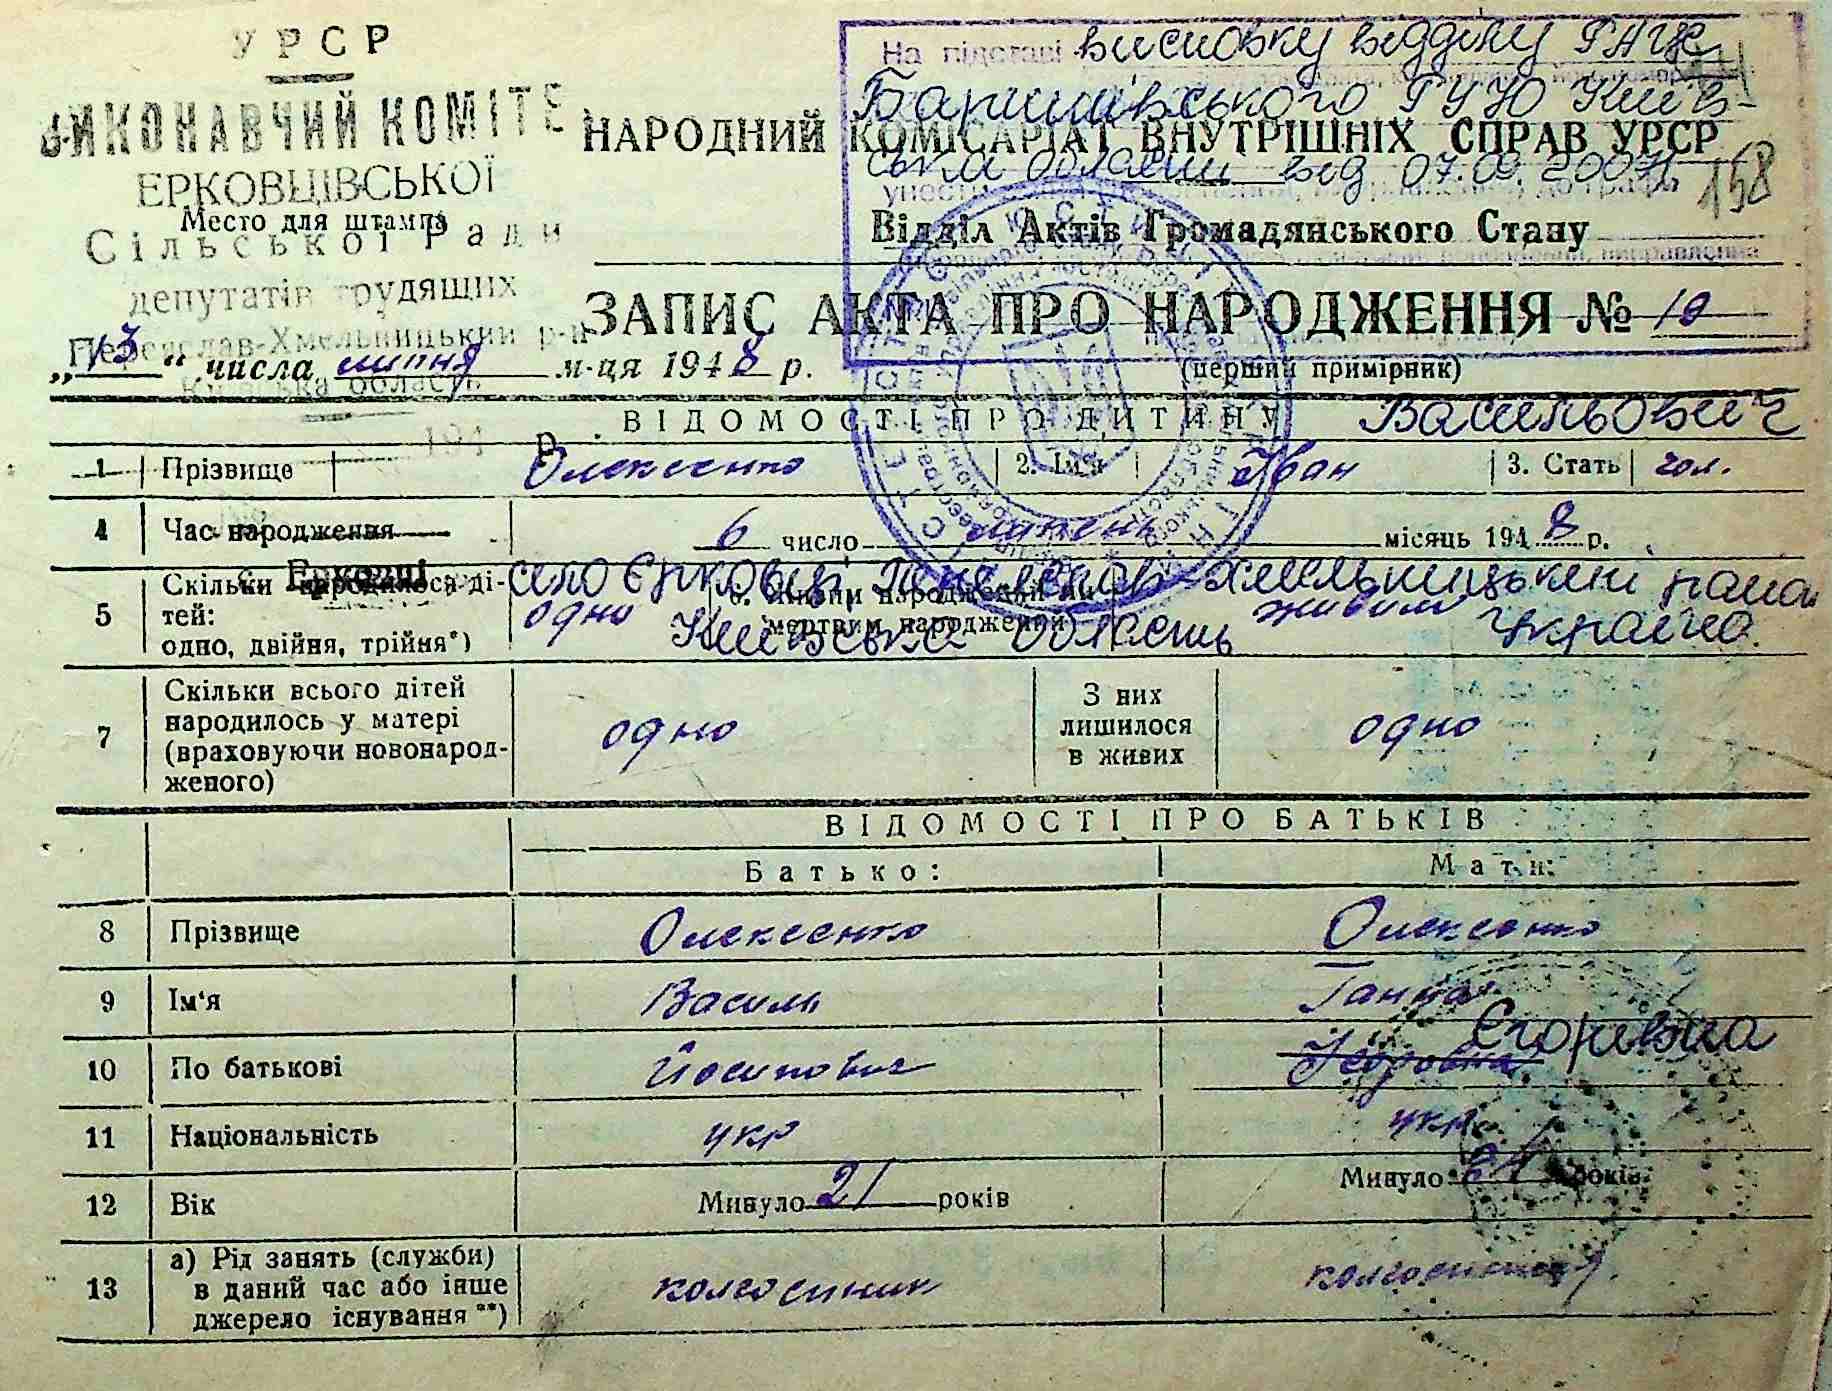 УРСР
ВИКОНАВЧИЙ КОМІТЕ
ЕРКОВЦІВСЬКОЇ
Место для штампа
Сільської Ради
депутатів трудящих
Переяслав-Хмельницький р-н
Київська область
194 р.
На підставі висновку відділу РАЦС
Баришівського РУЮ Київ-
ської області від 07.09.2007
НАРОДНИЙ КОМІСАРІАТ ВНУТРІШНІХ СПРАВ УРСР
158
Відділ Актів Громадянського Стану
ЗАПИС АКТА ПРО НАРОДЖЕННЯ № 19
(перший примірник)
„13“ числа липня м-ця 1948 р.
ВІДОМОСТІ ПРО ДИТИНУ Васильович
1 Прізвище Олексєнко 2. Ім'я Іван 3. Стать чол.
4 Час народження 6 число липень місяць 1948 р.
с. Ерковці село Єрковці Переяслав-Хмельницький район
Київська область Україна
5 Скільки народилося ді-
тей:
одно, двійня, трійня*) одно
6. Живим народжений чи
мертвим народжений живим
7 Скільки всього дітей
народилось у матері
(враховуючи новонарод-
женого) одно
З них
лишилося
в живих одно
ВІДОМОСТІ ПРО БАТЬКІВ
Батько: Мати:
8 Прізвище Олексєнко Олексєнко
9 Ім'я Василь Ганна
10 По батькові Йосипович Єгорівна
11 Національність укр укр
12 Вік Минуло 21 років Минуло 21 років
13 а) Рід занять (служби)
в даний час або інше
джерело існування**) колгоспник колгоспниця